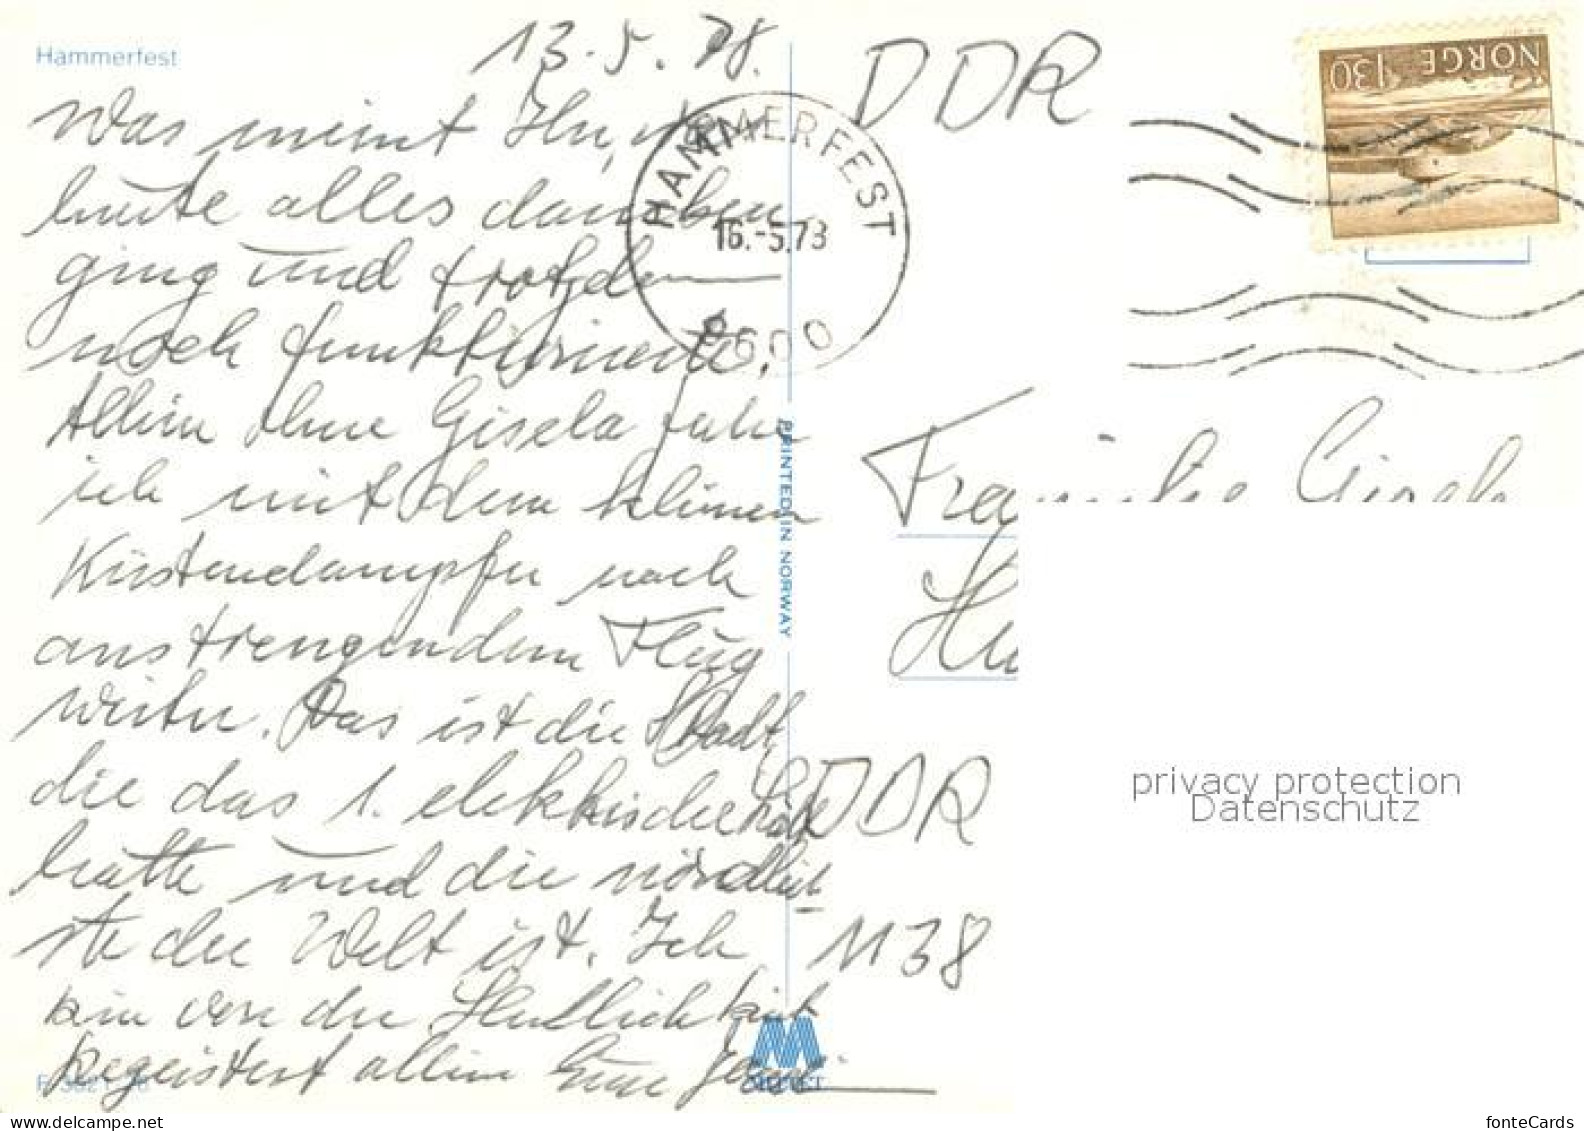 Hammerfest
13.5.78.
DDR
NORGE 130
HAMMERFEST
16.-5.78
9600
Was meint Ihr,
heute alles daneben
ging und trotzdem
noch funktionierte.
Allein ohne Gisela fahre
ich mit dem kleinen
Küstendampfer nach
anstrengendem Flug
weiter. Das ist die Stadt,
die das 1. elektrische Licht
hatte und die nördlich
ste der Welt ist. Ich
bin von der
begeistert allein Eure
PRINTED IN NORWAY
Gisela
DDR
1138
MITTET
privacy protection
Datenschutz
delcampe.net
fonteCards